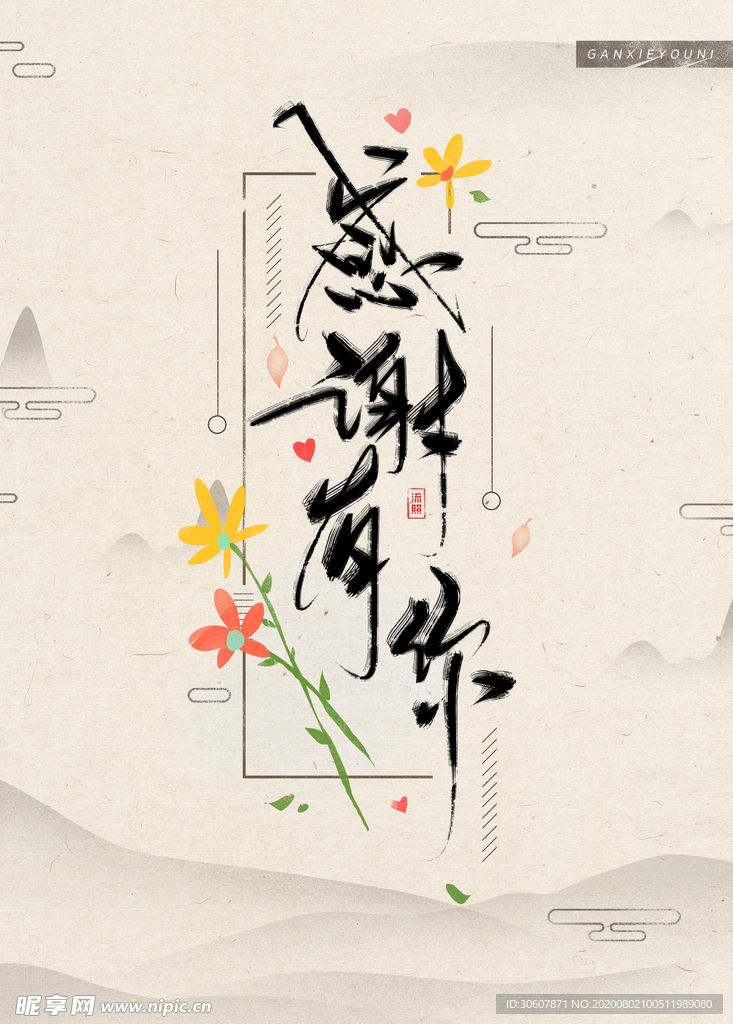 GANXIEYOUNI
感谢有你
流照
昵享网 www.nipic.cn
ID:30607871 NO:20200802100511989080